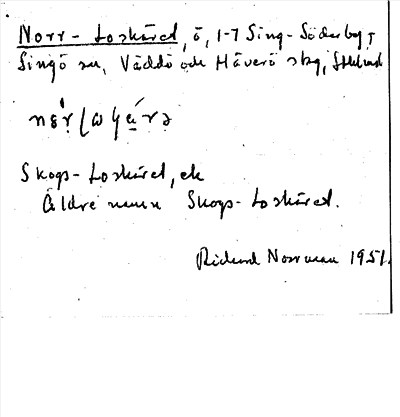 Norr-Loskäret, ö, 1-7 Sing-Söderby,
Singö sn, Väddö och Häverö skg, Sthlms l
Skogs-Loskäret, ek
Äldre namn Skogs-Loskäret.
Rickard Norrman 1951.